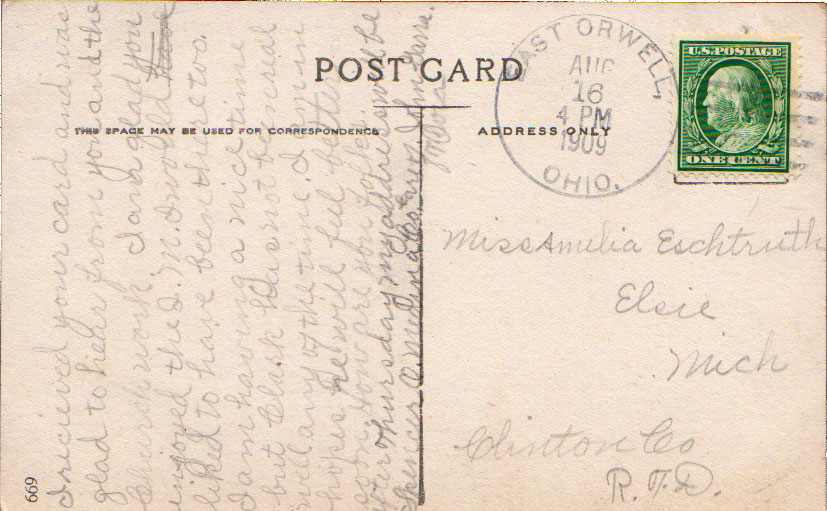 POST CARD
THIS SPACE MAY BE USED FOR CORRESPONDENCE
ADDRESS ONLY
EAST ORWELL,
AUG
16
4 PM
1909
OHIO.
U.S. POSTAGE
ONE CENT
Miss Amelia Eschtruth
Elsie
Mich
Clinton Co
R.F.D.
I recieved your card and was
glad to hear from you and the
Church work. I am glad you
enjoyed the I. M. I would have
liked to have been there too.
I am having a nice time
but Clark has not been real
well any of the time. I am in
hopes he will feel better
soon. How are you folks.
after Thursday my address will be
Spencer O. Medina Co. John
669